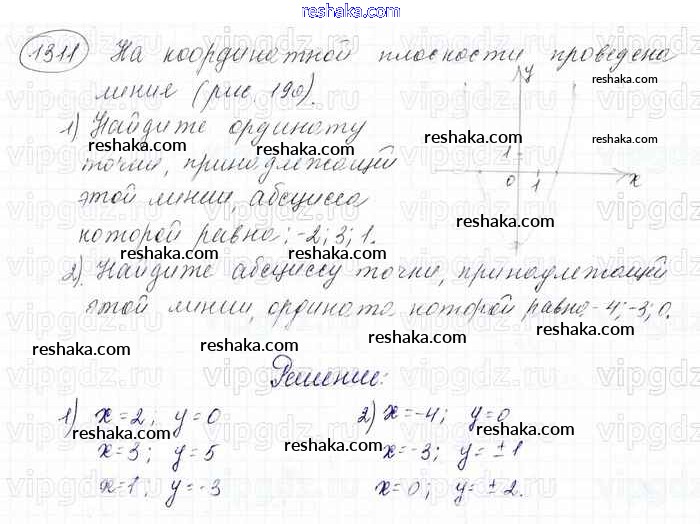 reshaka.com
1311 На координатной плоскости проведена
линие (рис 190).
1) Найдите ординату
точки, принадлежащей
этой линии, абсцисса
которой равна: -2; 3; 1.
y
1
0 1 x
2) Найдите абсциссу точки, принадлежащей
этой линии, ордината которой равна -4; -3; 0.
Решение:
1) x=2; y=0
x=3; y=5
x=1; y=-3
2) x=-4; y=0
x=-3; y=±1
x=0; y=±2.
reshaka.com
reshaka.com
reshaka.com
reshaka.com
reshaka.com
reshaka.com
reshaka.com
reshaka.com
reshaka.com
reshaka.com
reshaka.com
reshaka.com
reshaka.com
reshaka.com
vipgdz.ru